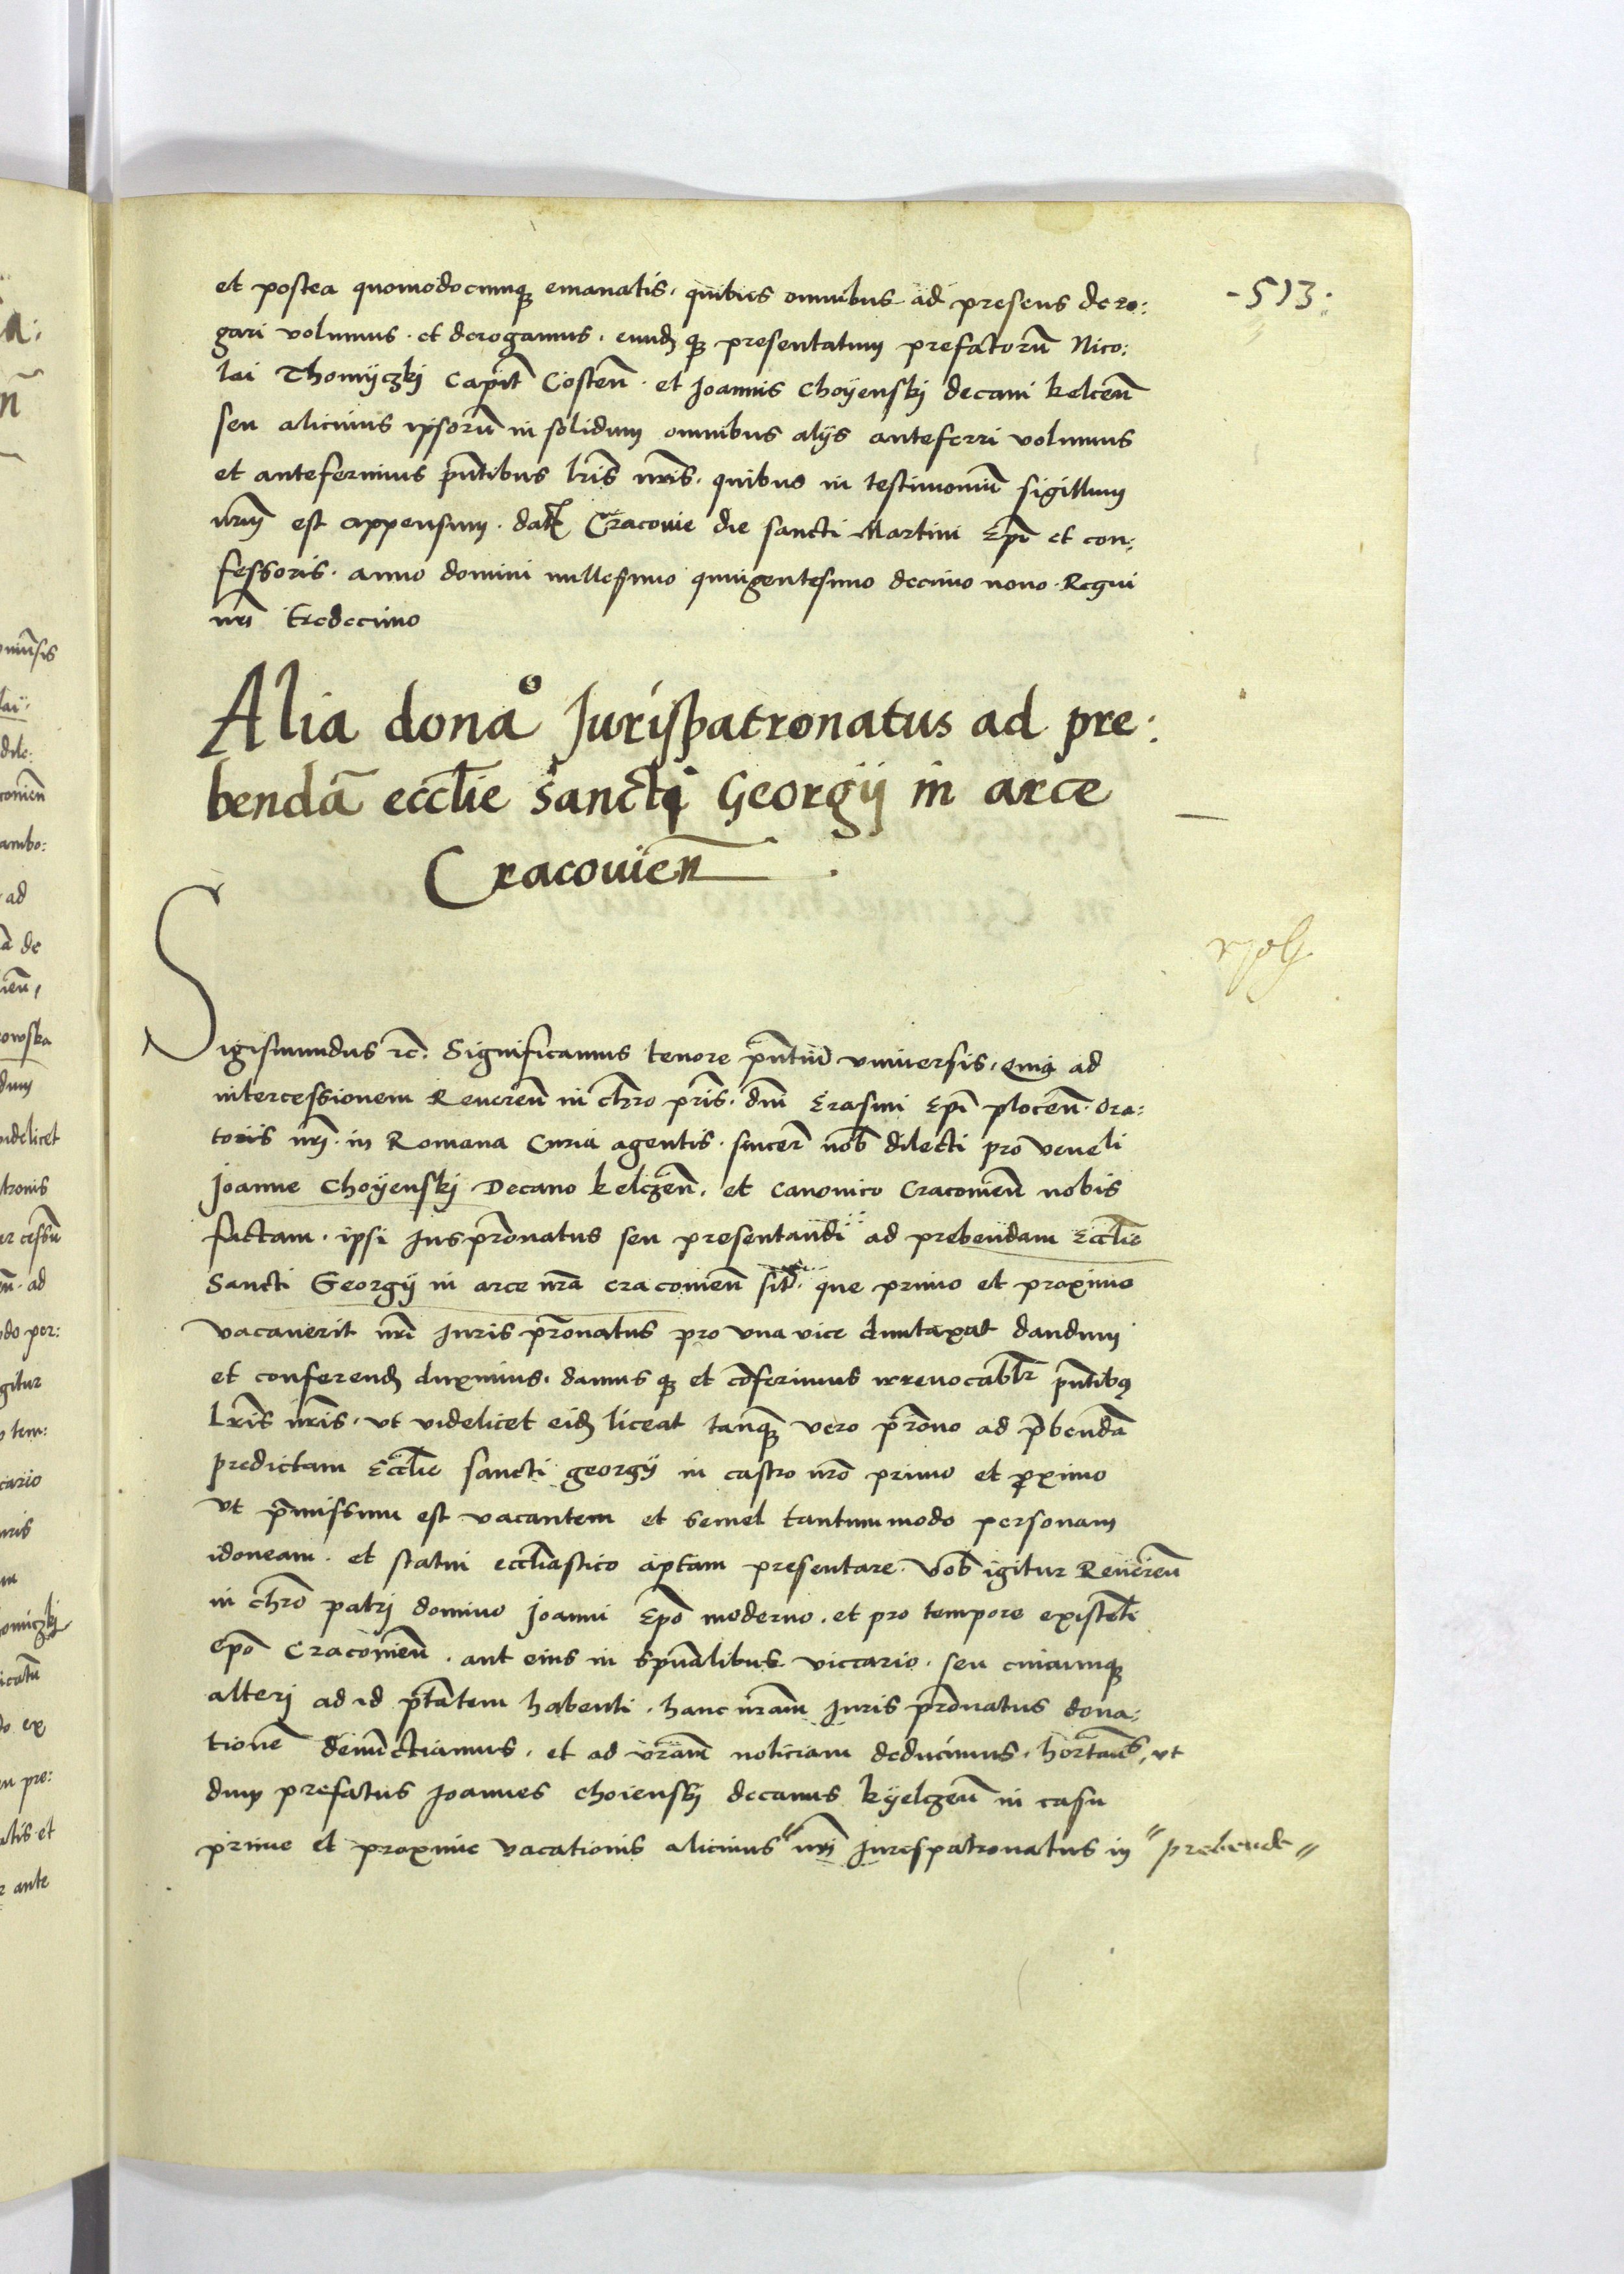 - 513 :
et postea quomodocumq emanatis. quibus omnibus ad presens dero:
gari volumus. et derogamus. eundq presentatum prefatorũ Nico:
lai Thomyczkj Capit Costeñ. et Joannis Choyenskj decani kelceñ
seu alicuius ipsorũ in solidum omnibus alijs anteferri volumus
et anteferimus pñtibus lris nris. quibus in testimoniũ sigillum
nrm est appensum. dat Cracouie die sancti Martini Epi et con:
fessoris. anno domini millesimo quingentesimo decimo nono. Regni
nri tredecimo
Alia donao Jurispatronatus ad pre:
bendã eccłie sancti Georgij in arce
Cracouieñ.
Sigismundus rc. Significamus tenore pñtiũ vniuersis. Quia ad
intercessionem Reuereñ in chro pris. dni Erasmi Epi ploceñ. Ora:
toris nri. in Romana Curia agentis. sincer nob dilecti pro veneli
Joanne Choyenskj Decano kelczeñ. et Canonico Cracouieñ nobis
factam. ipsi Juspronatus seu presentandi ad prebendam Eccłie
Sancti Georgij in arce nra cracouieñ sit. que primo et proximo
vacauerit nri Juris pronatus pro vna vice duntaxat dandum
et conferend duximus. damusq et cõferimus irreuocablr pñtibq
Lris nris. vt videlicet eid liceat tanq vero prono ad pbendã
predictam Eccłie sancti georgij in castro nro primo et pximo
vt pmissum est vacantem et semel tantummodo personam
idoneam. et statui eccłiastico aptam presentare. Vob igitur Reuereñ
in chro patrj domino Joanni Epo moderno. et pro tempore existeti
epo Cracouieñ. aut eius in spũalibus viccario. seu cuicumq
alterj ad id ptatem habenti. hanc nram Juris pronatus dona:
tionẽ denũctiamus. et ad vram noticiam deducimus. hortaũs, vt
dum prefatus Joannes choienskj decanus kyelczeñ in casu
prime et proxime vacationis alicuius " nri Jurespatronatus in " prebende "